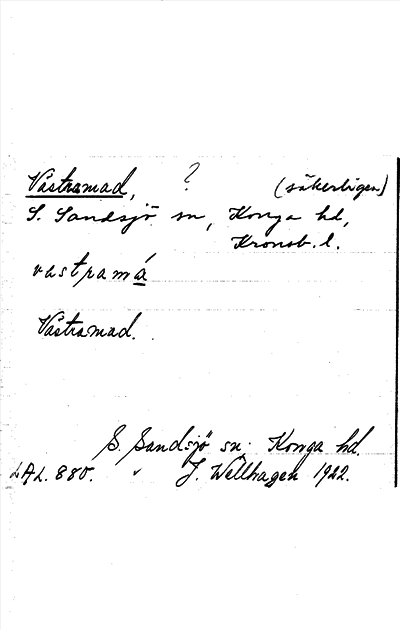 Västramad, ? (säkerligen)
S. Sandsjö sn, Konga hd,
Kronob. l.
vastramá
Västramad.
S. Sandsjö sn. Konga hd.
LAL. 880. " J. Wellhagen 1922.